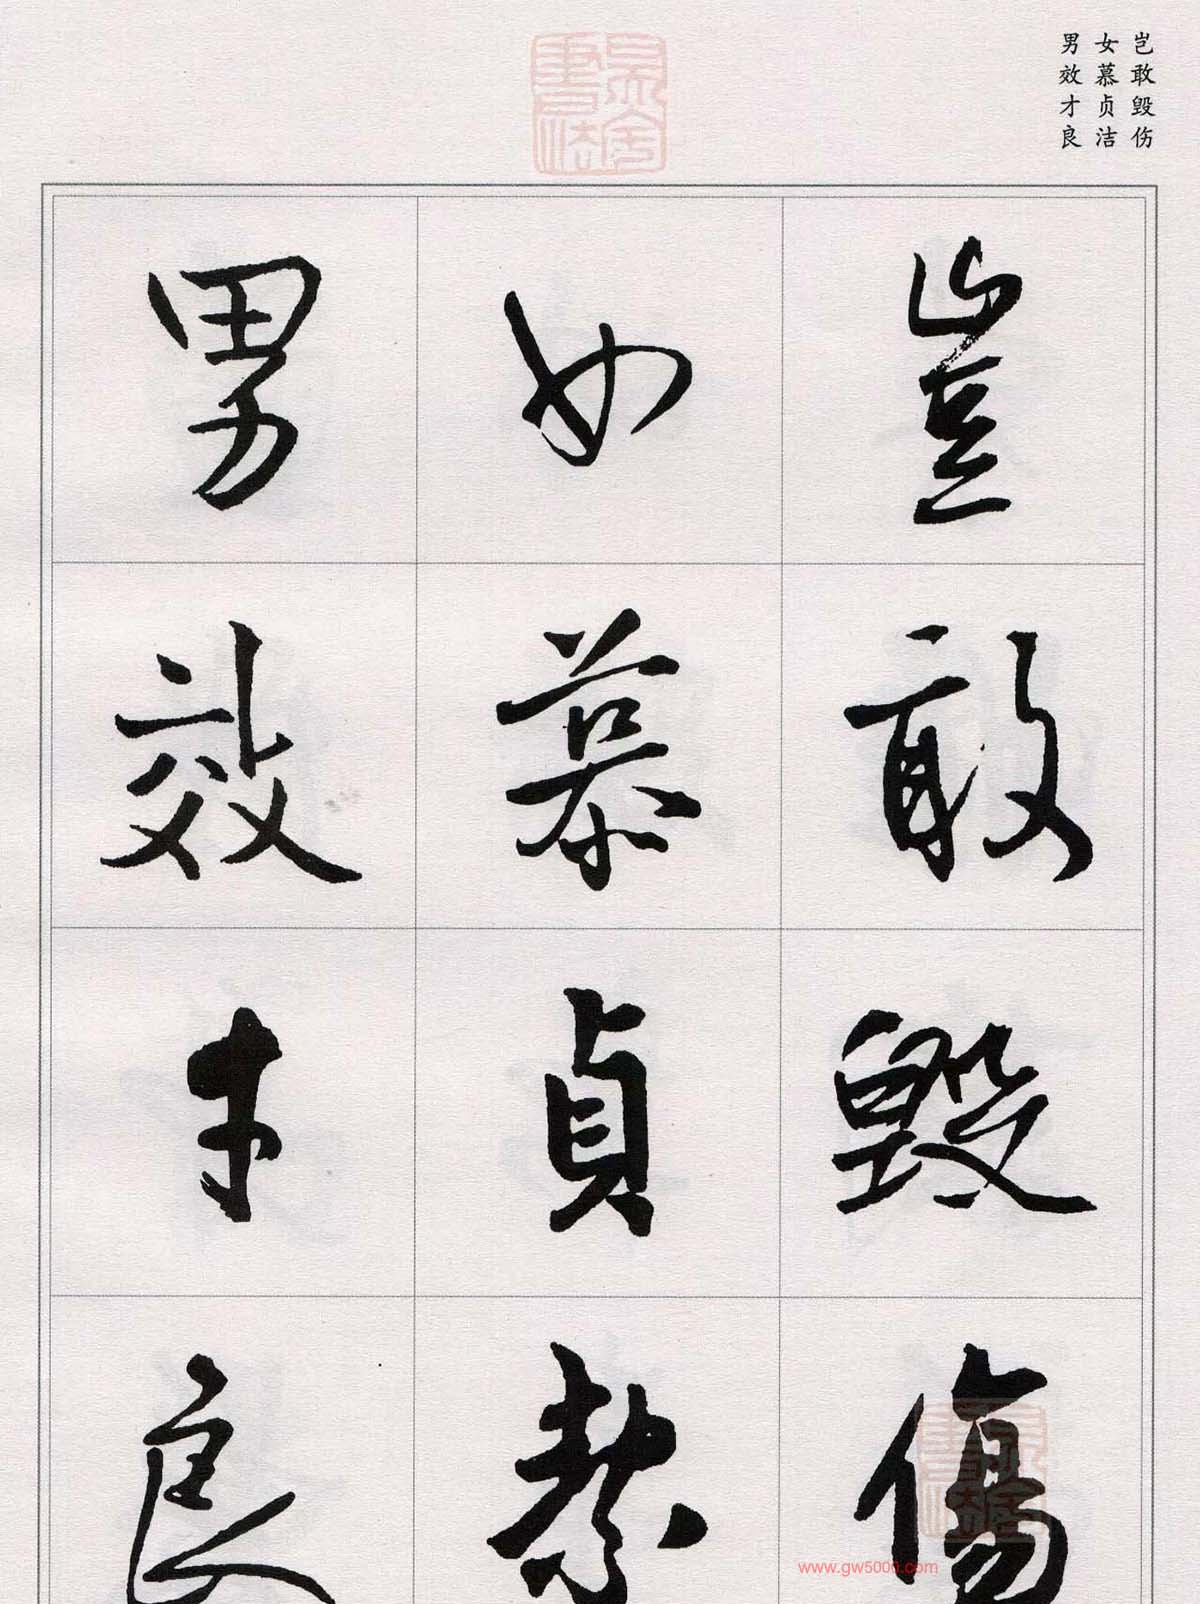 岂敢毁伤
女慕贞洁
男效才良
豈敢毀傷
女慕貞絜
男效才良
www.gw5000.com